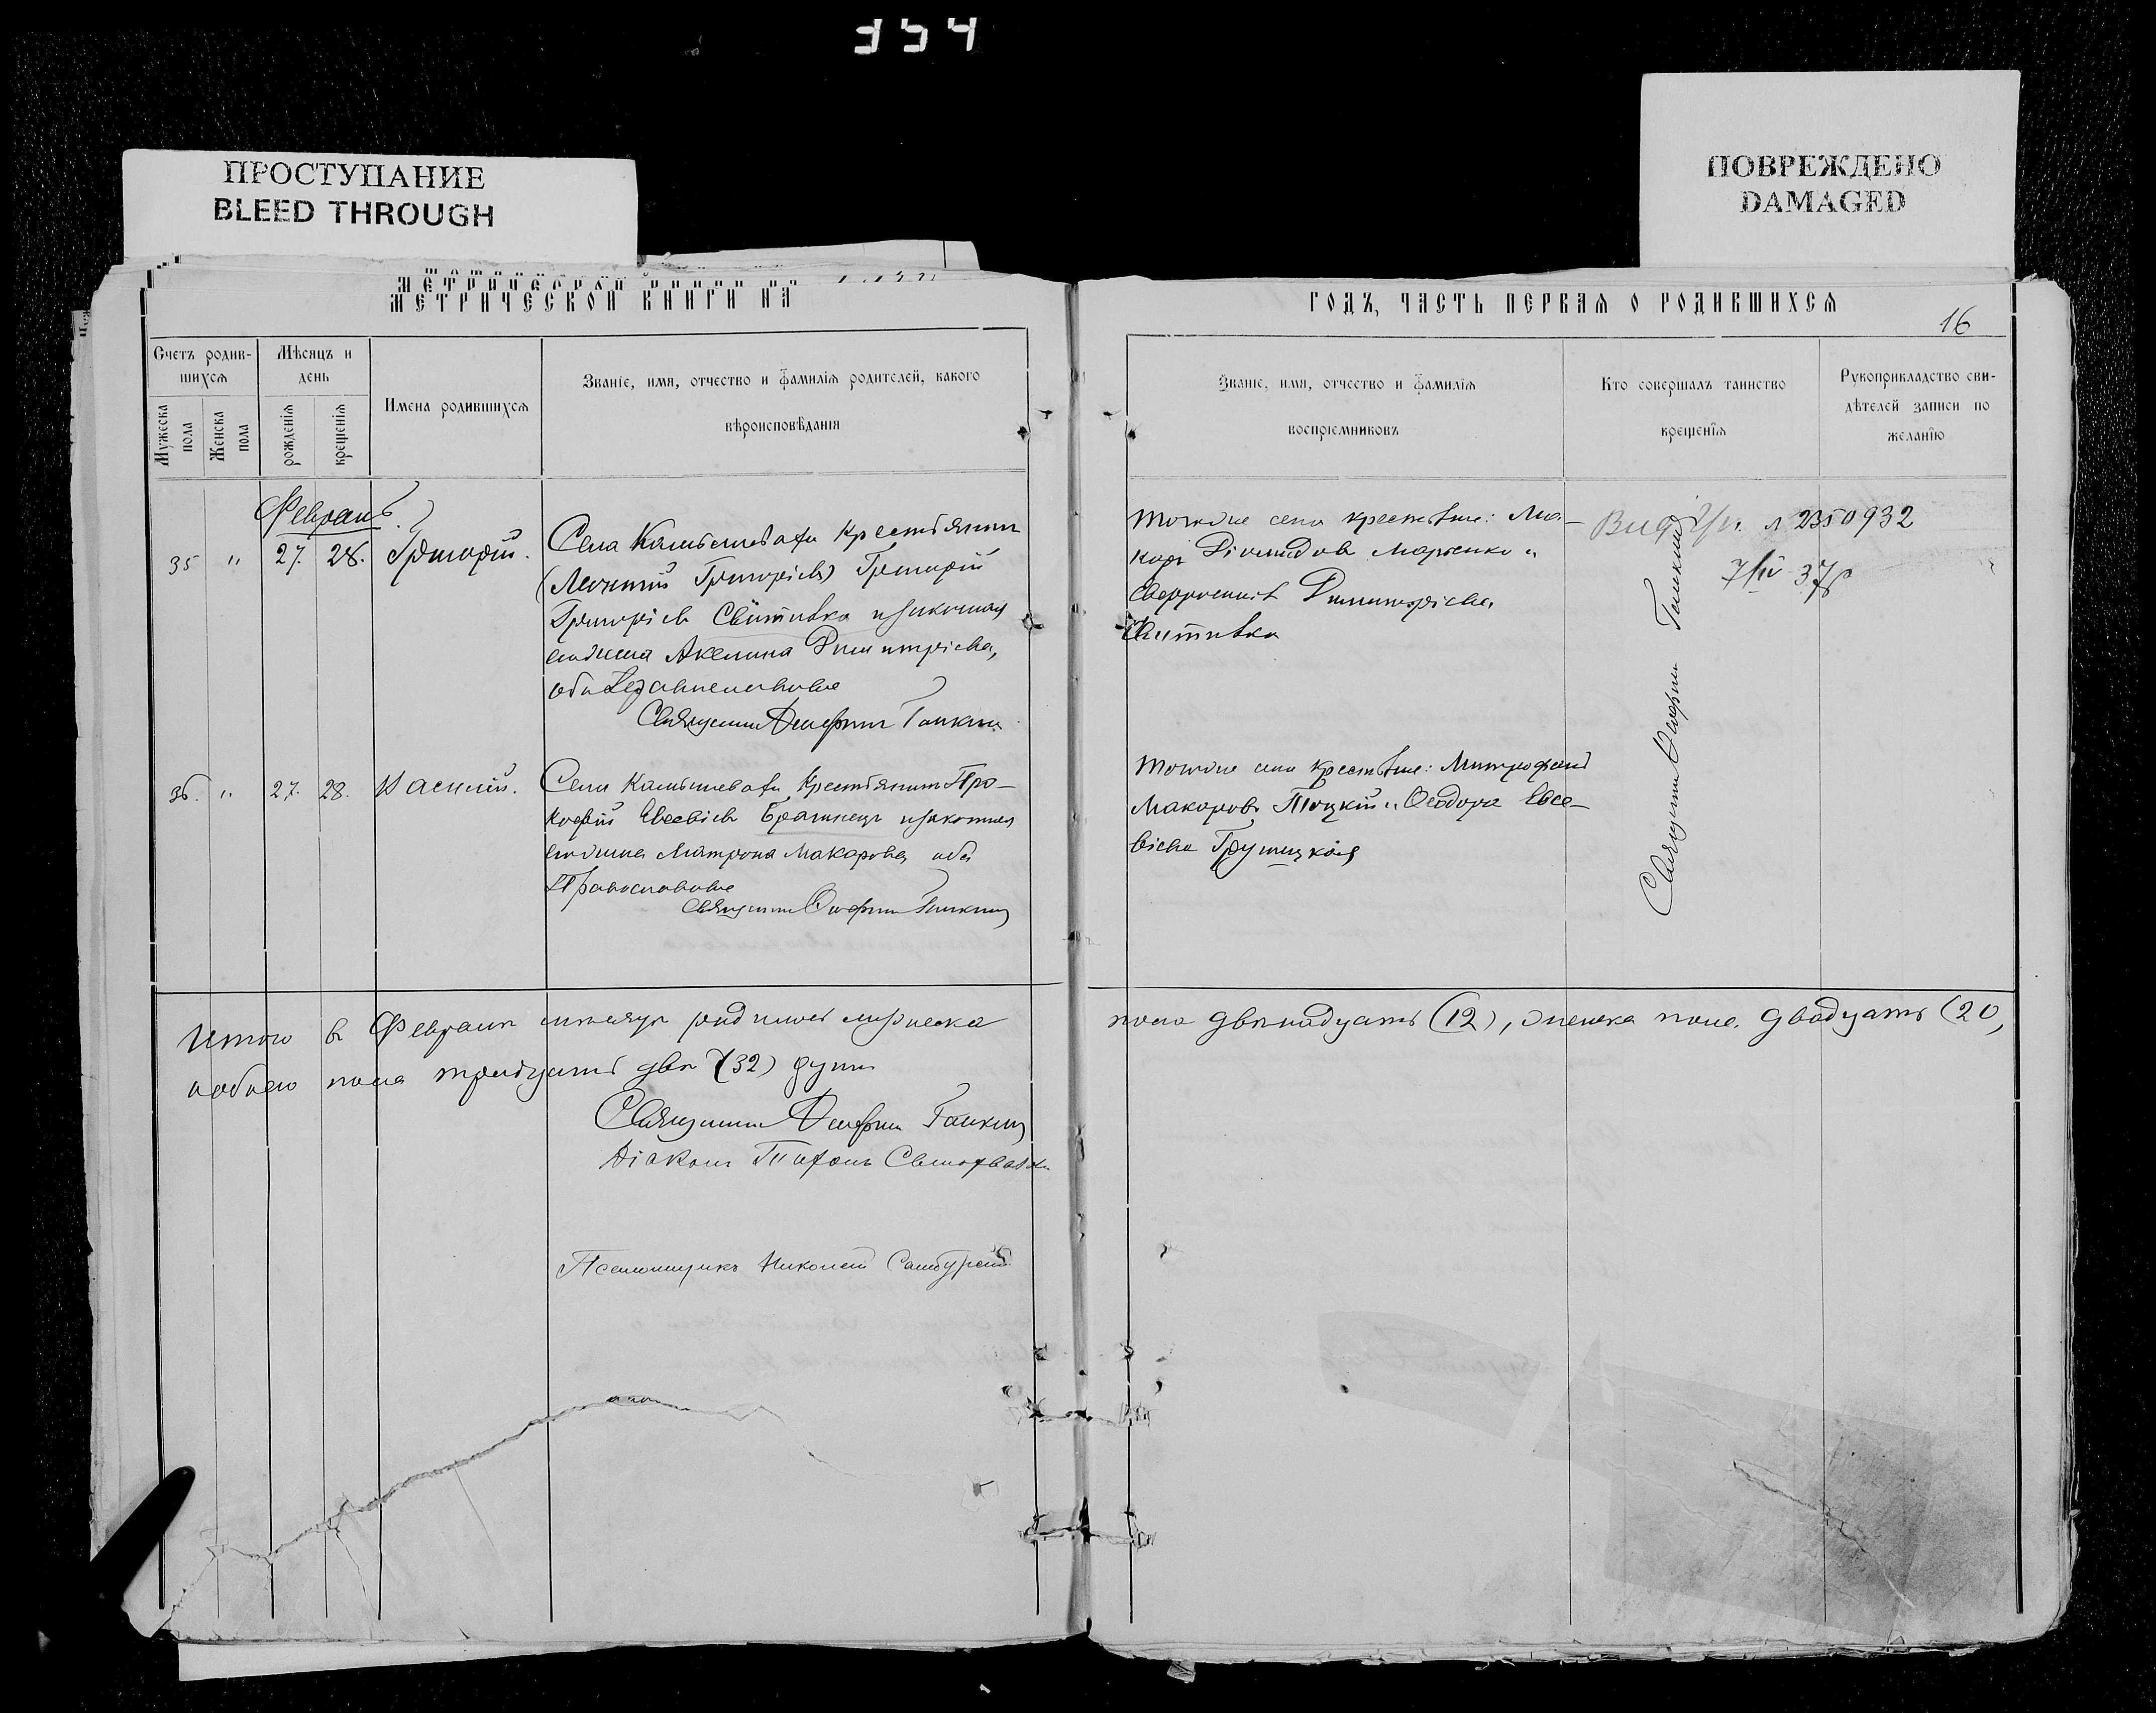 354
ПРОСТУПАНИЕ
BLEED THROUGH
ПОВРЕЖДЕНО
DAMAGED
МЕТРИЧЕСКОЙ КНИГИ НА
ГОДЪ, ЧАСТЬ ПЕРВАЯ О РОДИВШИХСЯ
16
Счетъ родив-
шихся
Мужеска пола
Женска пола
Мѣсяцъ и
день
рожденія
крещенія
Имена родившихся
Званіе, имя, отчество и фамилія родителей, какого
вѣроисповѣданія
Званіе, имя, отчество и фамилія
воспріемниковъ
Кто совершалъ таинство
крещенія
Рукоприкладство сви-
дѣтелей записи по
желанію
Февраль
35 " 27. 28. Григорій.
Села Камышевахи крестьянинъ
(Леонтій Григоріевъ) Григорій
Григоріевъ Свитивка и законная
его жена Акелина Димитріева,
оба православные
Священникъ Галкинъ
Тогоже села крестьяне: Ма-
каръ Діомидовъ Марченко и
Евфросинія Димитріева
Свитивка
2350932
7/IV 37р
Священникъ Галкинъ
36. " 27. 28. Василій.
Села Камышевахи крестьянинъ Про-
кофій Евсевіевъ Братнецъ и законная
его жена Матрона Макарова, оба
Православные
Священникъ Галкинъ
Тогоже села крестьяне: Митрофанъ
Макаровъ Тоцкій и Ѳеодора Евсе-
віева Грушицкая
Итого въ Февралѣ мѣсяцѣ родилось мужеска
пола двѣнадцать (12), женска пола двадцать (20,
и обоего пола тридцать двѣ (32) души
Священникъ Галкинъ
Діаконъ Тихонъ
Псаломщикъ Николай Самбурскій